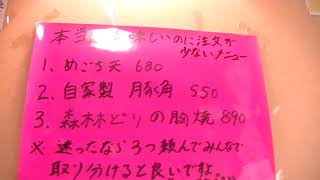 本当に美味しいのに注文が
少ないメニュー
1、めごち天 680
2、自家製 豚角 550
3、森林どりの胸焼 890
※ 迷ったなら3つ頼んでみんなで
取り分けると良いですよ...